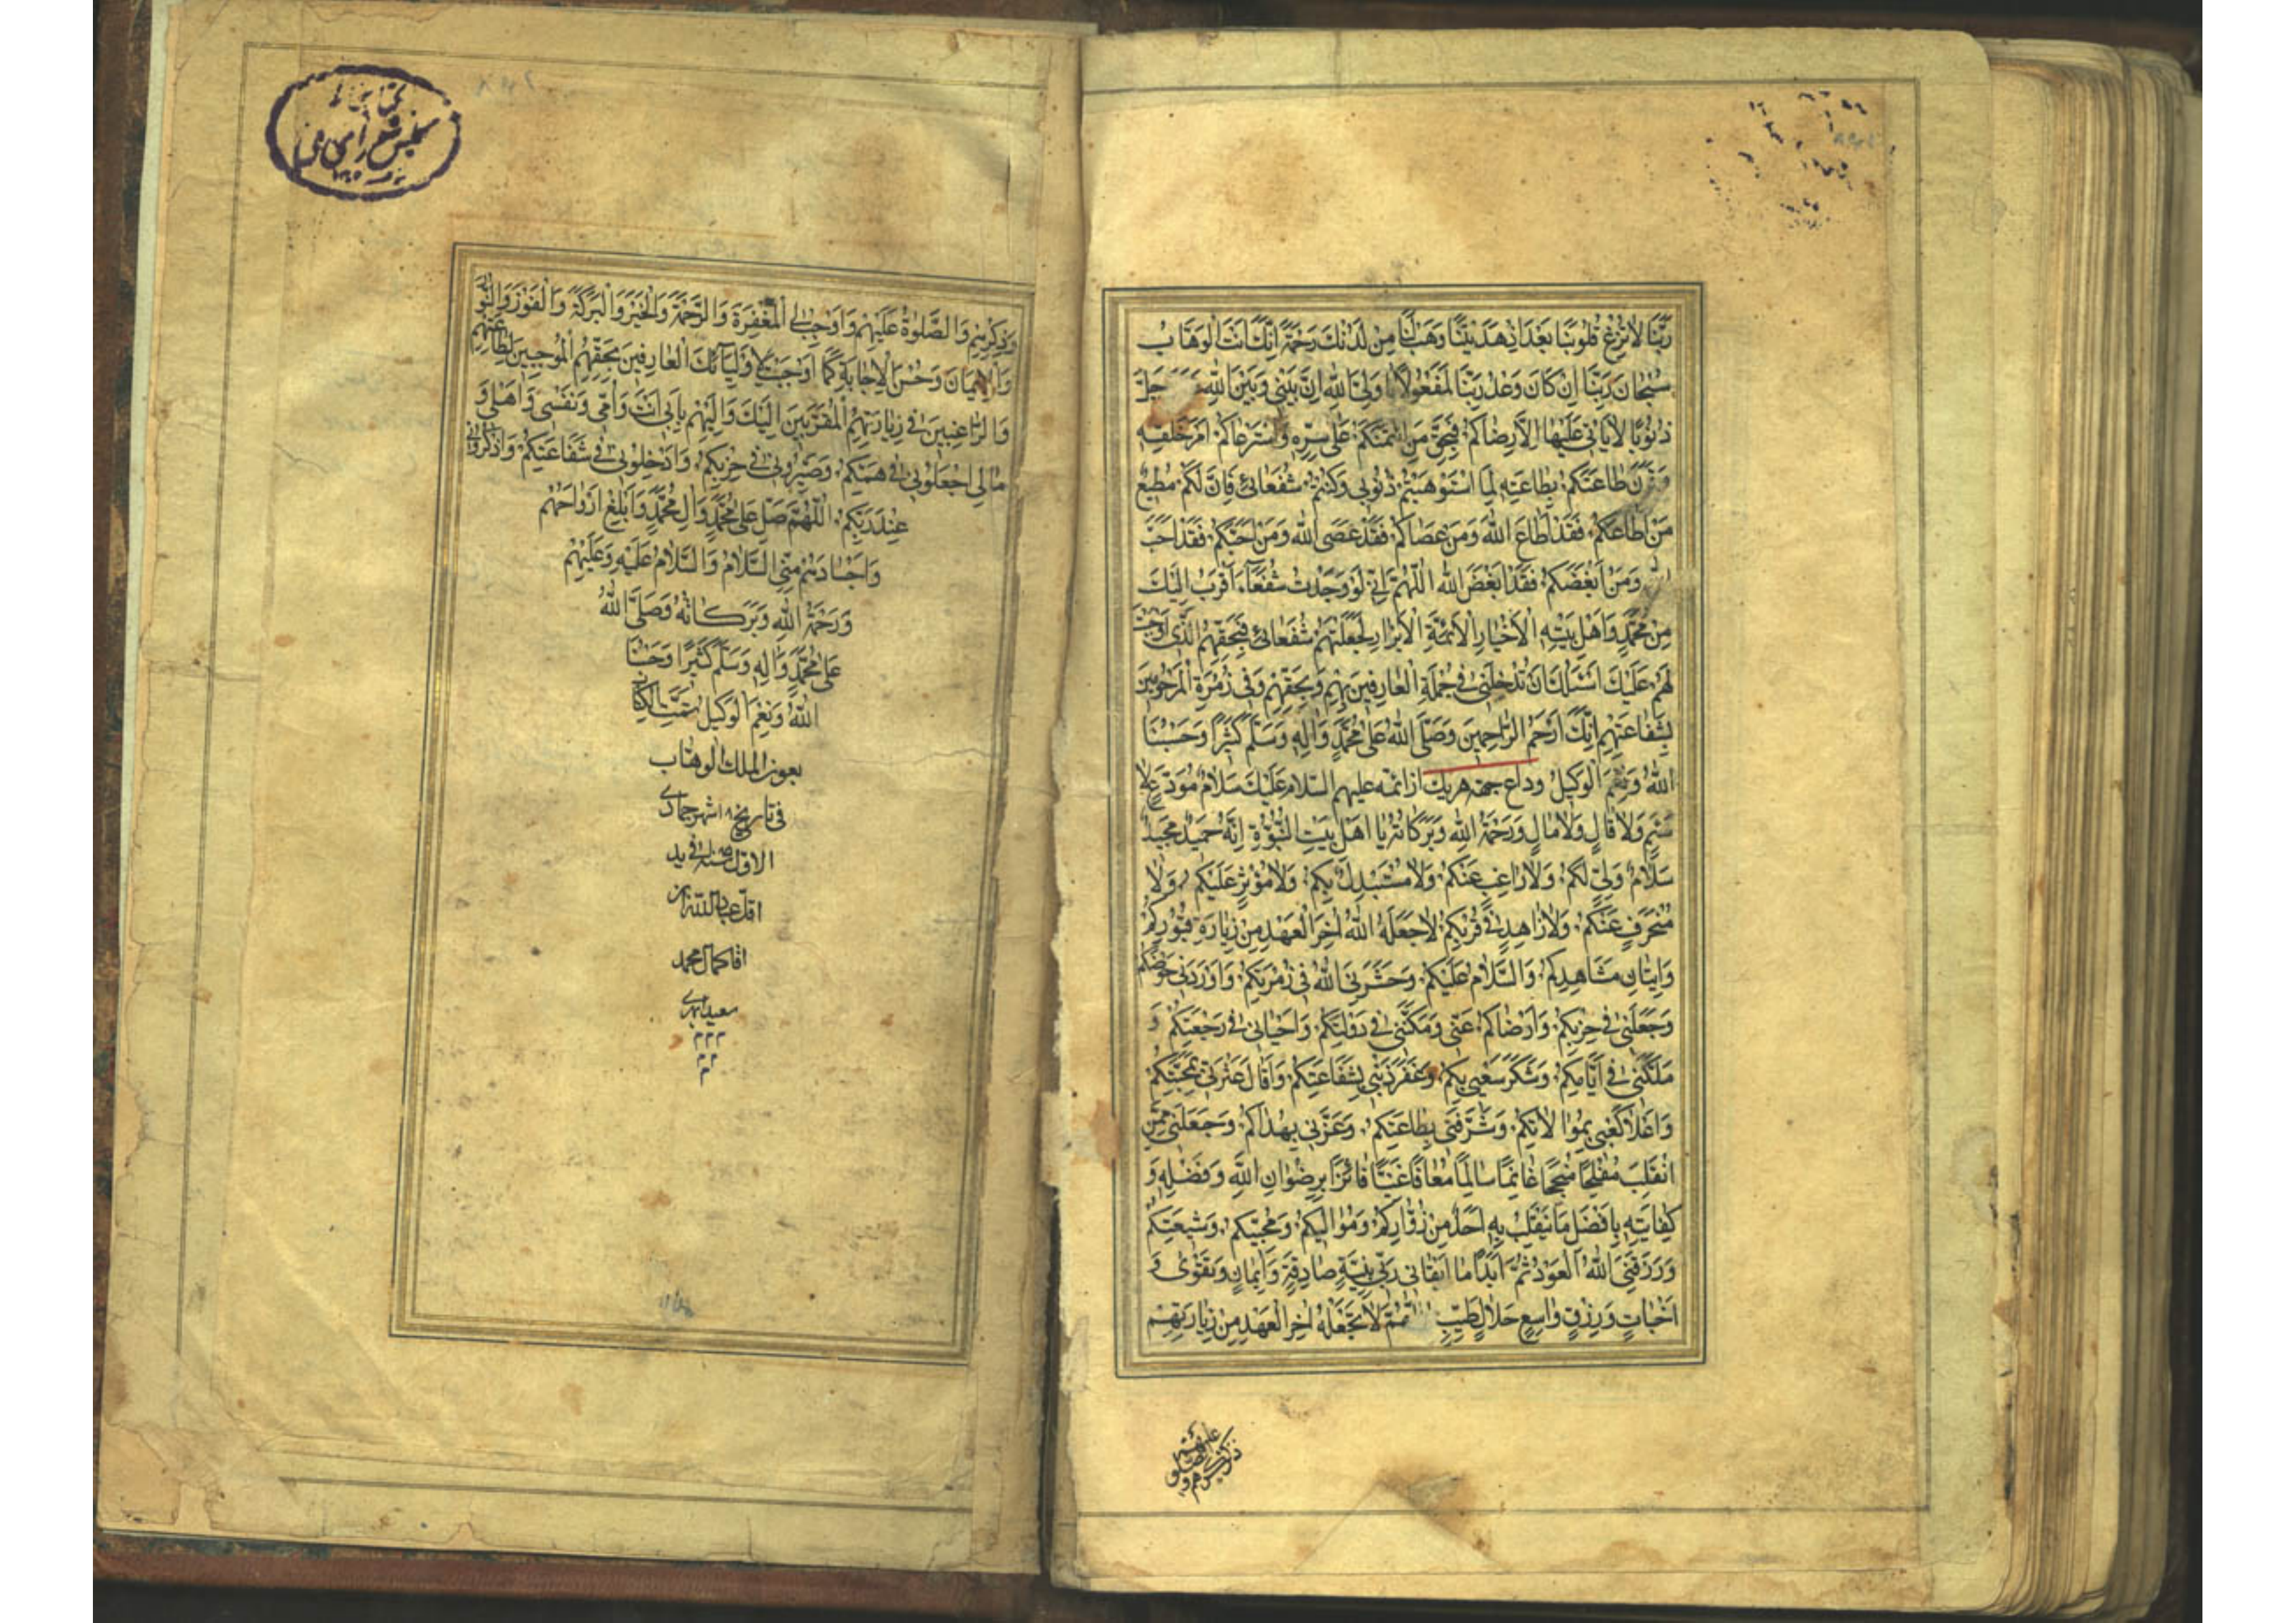 رَبَّنَا لَا تُزِغْ قُلُوبَنَا بَعْدَ اِذْ هَدَيْتَنَا وَهَبْ لَنَا مِنْ لَدُنْكَ رَحْمَةً اِنَّكَ اَنْتَ الْوَهَّابُ
سُبْحَانَ رَبِّنَا اِنْ كَانَ وَعْدُ رَبِّنَا لَمَفْعُولًا يَا وَلِيَّ اللهِ اِنَّ بَيْنِي وَبَيْنَ اللهِ عَزَّ وَجَلَّ
ذُنُوبًا لَا يَأْتِي عَلَيْهَا اِلَّا رِضَاكُمْ فَبِحَقِّ مَنِ ائْتَمَنَكُمْ عَلَى سِرِّهِ وَاسْتَرْعَاكُمْ اَمْرَ خَلْقِهِ
وَقَرَنَ طَاعَتَكُمْ بِطَاعَتِهِ لَمَّا اسْتَوْهَبْتُمْ ذُنُوبِي وَكُنْتُمْ شُفَعَائِي فَاِنِّي لَكُمْ مُطِيعٌ
مَنْ اَطَاعَكُمْ فَقَدْ اَطَاعَ اللهَ وَمَنْ عَصَاكُمْ فَقَدْ عَصَى اللهَ وَمَنْ اَحَبَّكُمْ فَقَدْ اَحَبَّ
اللهَ وَمَنْ اَبْغَضَكُمْ فَقَدْ اَبْغَضَ اللهَ اَللّٰهُمَّ اِنِّي لَوْ وَجَدْتُ شُفَعَاءَ اَقْرَبَ اِلَيْكَ
مِنْ مُحَمَّدٍ وَاَهْلِ بَيْتِهِ الْاَخْيَارِ الْاَئِمَّةِ الْاَبْرَارِ لَجَعَلْتُهُمْ شُفَعَائِي فَبِحَقِّهِمُ الَّذِي اَوْجَبْتَ
لَهُمْ عَلَيْكَ اَسْئَلُكَ اَنْ تُدْخِلَنِي فِي جُمْلَةِ الْعَارِفِينَ بِهِمْ وَبِحَقِّهِمْ وَفِي زُمْرَةِ الْمَرْحُومِينَ
بِشَفَاعَتِهِمْ اِنَّكَ اَرْحَمُ الرَّاحِمِينَ وَصَلَّى اللهُ عَلَى مُحَمَّدٍ وَآلِهِ وَسَلَّمَ كَثِيرًا وَحَسْبُنَا
اللهُ وَنِعْمَ الْوَكِيلُ وداع جهة هريك از ائمه عليهم السلام عَلَيْكَ سَلَامُ مُوَدِّعٍ لَا
سَئِمٍ وَلَا قَالٍ وَلَا مَالٍّ وَرَحْمَةُ اللهِ وَبَرَكَاتُهُ يَا اَهْلَ بَيْتِ النُّبُوَّةِ اِنَّهُ حَمِيدٌ مَجِيدٌ
سَلَامُ وَلِيٍّ لَكُمْ وَلَا رَاغِبٍ عَنْكُمْ وَلَا مُسْتَبْدِلٍ بِكُمْ وَلَا مُؤْثِرٍ عَلَيْكُمْ وَلَا
مُنْحَرِفٍ عَنْكُمْ وَلَا زَاهِدٍ فِي قُرْبِكُمْ لَا جَعَلَهُ اللهُ اٰخِرَ الْعَهْدِ مِنْ زِيَارَةِ قُبُورِكُمْ
وَاِتْيَانِ مَشَاهِدِكُمْ وَالسَّلَامُ عَلَيْكُمْ وَحَشَرَنِيَ اللهُ فِي زُمْرَتِكُمْ وَاَوْرَدَنِي حَوْضَكُمْ
وَجَعَلَنِي فِي حِزْبِكُمْ وَاَرْضَاكُمْ عَنِّي وَمَكَّنَنِي فِي دَوْلَتِكُمْ وَاَحْيَانِي فِي رَجْعَتِكُمْ وَ
مَلَّكَنِي فِي اَيَّامِكُمْ وَشَكَرَ سَعْيِي بِكُمْ وَغَفَرَ ذَنْبِي بِشَفَاعَتِكُمْ وَاَقَالَ عَثْرَتِي بِمَحَبَّتِكُمْ
وَاَعْلَا كَعْبِي بِمُوَالَاتِكُمْ وَشَرَّفَنِي بِطَاعَتِكُمْ وَعَزَّنِي بِهُدَاكُمْ وَجَعَلَنِي مِمَّنِ
انْقَلَبَ مُفْلِحًا مُنْجِحًا غَانِمًا سَالِمًا مُعَافًا غَنِيًّا فَائِزًا بِرِضْوَانِ اللهِ وَفَضْلِهِ وَ
كِفَايَتِهِ بِاَفْضَلِ مَا يَنْقَلِبُ بِهِ اَحَدٌ مِنْ زُوَّارِكُمْ وَمَوَالِيكُمْ وَمُحِبِّيكُمْ وَشِيعَتِكُمْ
وَرَزَقَنِيَ اللهُ الْعَوْدَ ثُمَّ اَبَدًا مَا اَبْقَانِي رَبِّي بِنِيَّةٍ صَادِقَةٍ وَاِيمَانٍ وَتَقْوٰى وَ
اِخْبَاتٍ وَرِزْقٍ وَاسِعٍ حَلَالٍ طَيِّبٍ اللّٰهُمَّ لَا تَجْعَلْهُ اٰخِرَ الْعَهْدِ مِنْ زِيَارَتِهِمْ
وَذِكْرِهِمْ وَالصَّلٰوةِ عَلَيْهِمْ وَاَوْجِبْ لِيَ الْمَغْفِرَةَ وَالرَّحْمَةَ وَالْخَيْرَ وَالْبَرَكَةَ وَالْفَوْزَ وَالنُّورَ
وَالْاِيمَانَ وَحُسْنَ الْاِجَابَةِ كَمَا اَوْجَبْتَ لِاَوْلِيَائِكَ الْعَارِفِينَ بِحَقِّهِمُ الْمُوجِبِينَ لِطَاعَتِهِمْ
وَالرَّاغِبِينَ فِي زِيَارَتِهِمُ الْمُقَرَّبِينَ اِلَيْكَ وَاِلَيْهِمْ بِاَبِي اَنْتَ وَاُمِّي وَنَفْسِي وَاَهْلِي وَ
مَالِي اجْعَلُونِي فِي هَمِّكُمْ وَصَيِّرُونِي فِي حِزْبِكُمْ وَاَدْخِلُونِي فِي شَفَاعَتِكُمْ وَاذْكُرُونِي
عِنْدَ رَبِّكُمْ اَللّٰهُمَّ صَلِّ عَلَى مُحَمَّدٍ وَآلِ مُحَمَّدٍ وَاَبْلِغْ اَرْوَاحَهُمْ
وَاَجْسَادَهُمْ مِنِّي السَّلَامَ وَالسَّلَامُ عَلَيْهِ وَعَلَيْهِمْ
وَرَحْمَةُ اللهِ وَبَرَكَاتُهُ وَصَلَّى اللهُ
عَلَى مُحَمَّدٍ وَآلِهِ وَسَلَّمَ كَثِيرًا وَحَسْبُنَا
اللهُ وَنِعْمَ الْوَكِيلُ تمت الكتاب
بعون الملك الوهاب
فى تاريخ ۱۸ شهر جمادى
الاول سنه
اقل عباد الله
اقا كمال محمد
كتابخانه
مجلس شورأى ملى